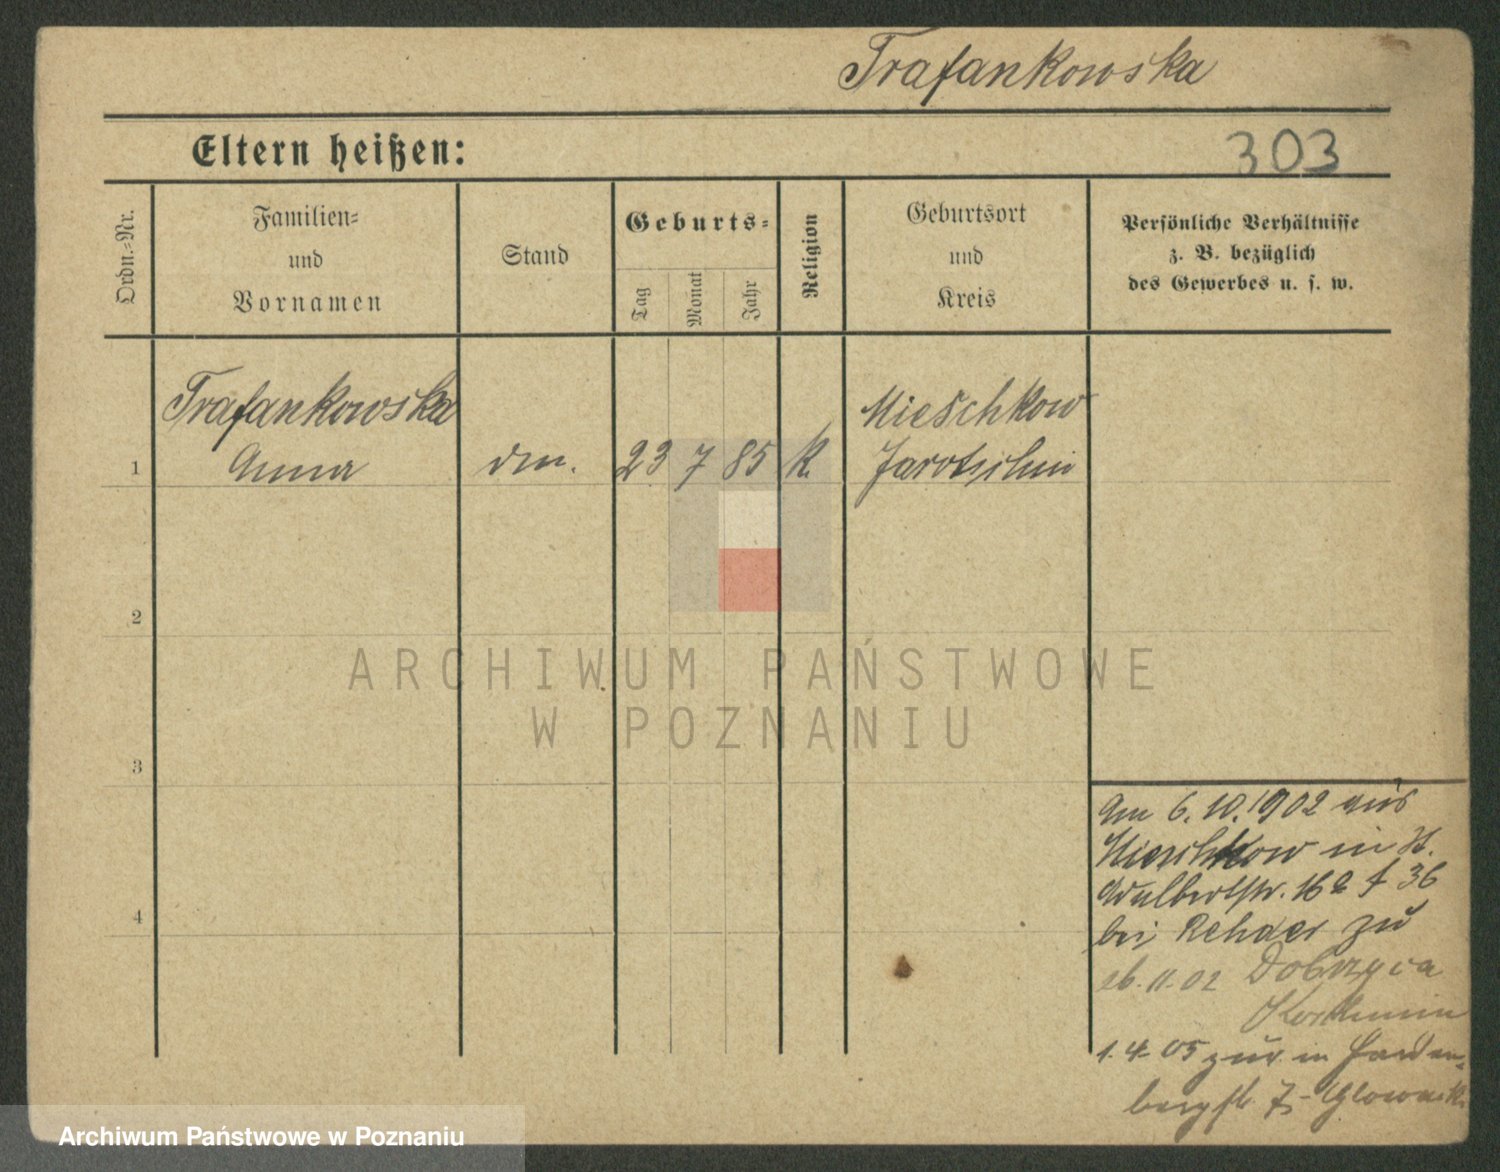 Trafankowska
Eltern heißen:
303
Ordn.-Nr.
Familien-
und
Vornamen
Stand
Geburts-
Tag
Monat
Jahr
Religion
Geburtsort
und
Kreis
Persönliche Verhältnisse
z. B. bezüglich
des Gewerbes u. s. w.
Trafankowska
Mieschkow
1 Anna dm. 23 7 85 k. Jarotschin
2
ARCHIWUM PAŃSTWOWE
W POZNANIU
3
Am 6.10.1902 aus
Mieschkow in St.
Adalbertstr. 16a f 36
4
bei Rehder zu
26.11.02 Dobrzyca
Koschmin
1.4.05 zur. in Harden-
bergstr. 7 - Glowacki
Archiwum Państwowe w Poznaniu